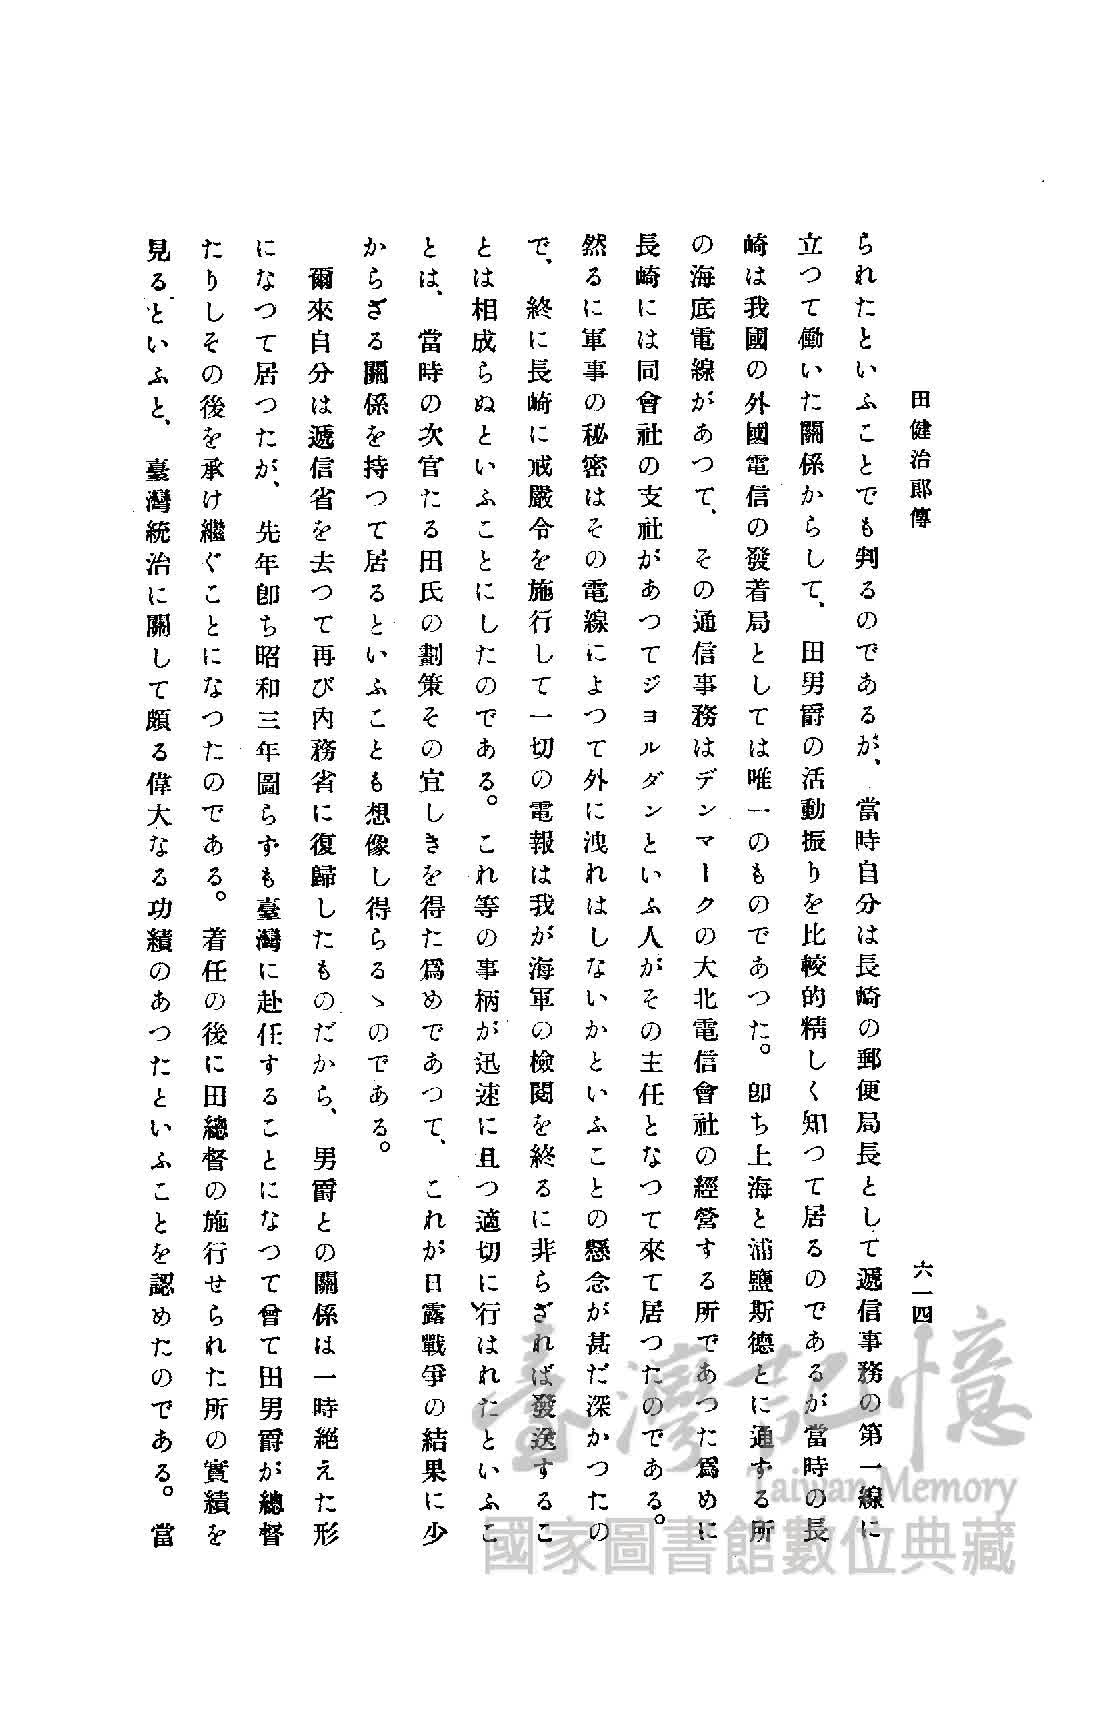 田健治郎傳
六一四
られたといふことでも判るのであるが、當時自分は長崎の郵便局長として遞信事務の第一線に
立つて働いた關係からして、田男爵の活動振りを比較的精しく知つて居るのであるが當時の長
崎は我國の外國電信の發着局としては唯一のものであつた。卽ち上海と浦鹽斯德とに通ずる所
の海底電線があつて、その通信事務はデンマークの大北電信會社の經營する所であつた爲めに
長崎には同會社の支社があつてジヨルダンといふ人がその主任となつて來て居つたのである。
然るに軍事の秘密はその電線によつて外に洩れはしないかといふことの懸念が甚だ深かつたの
で、終に長崎に戒嚴令を施行して一切の電報は我が海軍の檢閱を終るに非らざれば發送するこ
とは相成らぬといふことにしたのである。これ等の事柄が迅速に且つ適切に行はれたといふこ
とは、當時の次官たる田氏の劃策その宜しきを得た爲めであつて、これが日露戰爭の結果に少
からざる關係を持つて居るといふことも想像し得らるゝのである。
爾來自分は遞信省を去つて再び內務省に復歸したものだから、男爵との關係は一時絕えた形
になつて居つたが、先年卽ち昭和三年圖らずも臺灣に赴任することになつて曾て田男爵が總督
たりしその後を承け繼ぐことになつたのである。着任の後に田總督の施行せられた所の實績を
見るといふと、臺灣統治に關して頗る偉大なる功績のあつたといふことを認めたのである。當
臺灣記憶
Taiwan Memory
國家圖書館數位典藏